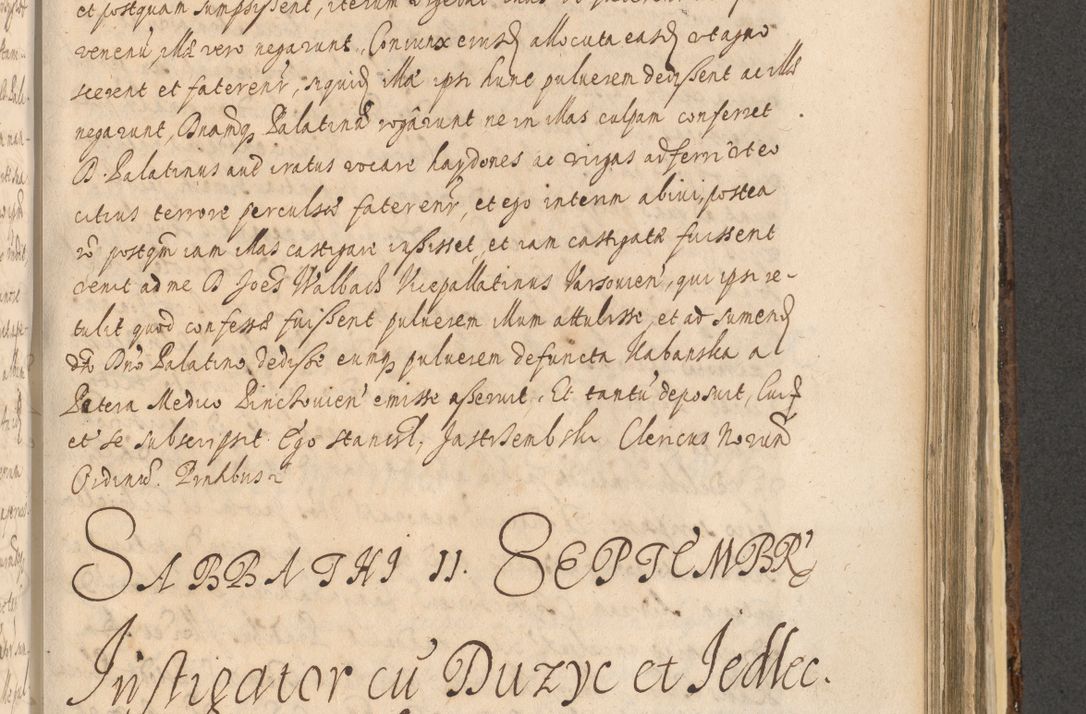 et postquam sumpsissent, iterum
venenū, illæ vero negarunt. Coniunx eiusd allocuta easd, ut agno
scerent et faterent̄r, siquid illæ ipsi hunc puluerem dedissent ac illæ
negarunt, Dnamq Palatinā rogârunt ne in illas culpam conferret
D. Palatinus aut iratus vocare haydones ac virgas adferri ut eo
citius terrore perculsæ faterent̄r, et ego interim abivi, postea
v̄o postqm iam illas castigare iussisset, et iam castigatæ fuissent
venit ad me D Joēs Walbach Vicepallatinus Varsovien', qui ipsi re-
tulit quod confessæ fuissent puluerem illum attulisse, et ad sumend
Dno Palatino dedisse eumq puluerem defuncta Kabanska a
Petera Medico Pinchovien' emisse asseruit. Et tantū deposuit,
et se subscripsit. Ego Stanisl, Jastrsembski Clericus Norum
Ordinū. Pntibus
SABBATHI 11. SEPTEMBR'
Instigator cū Duzyc et Jedlec.